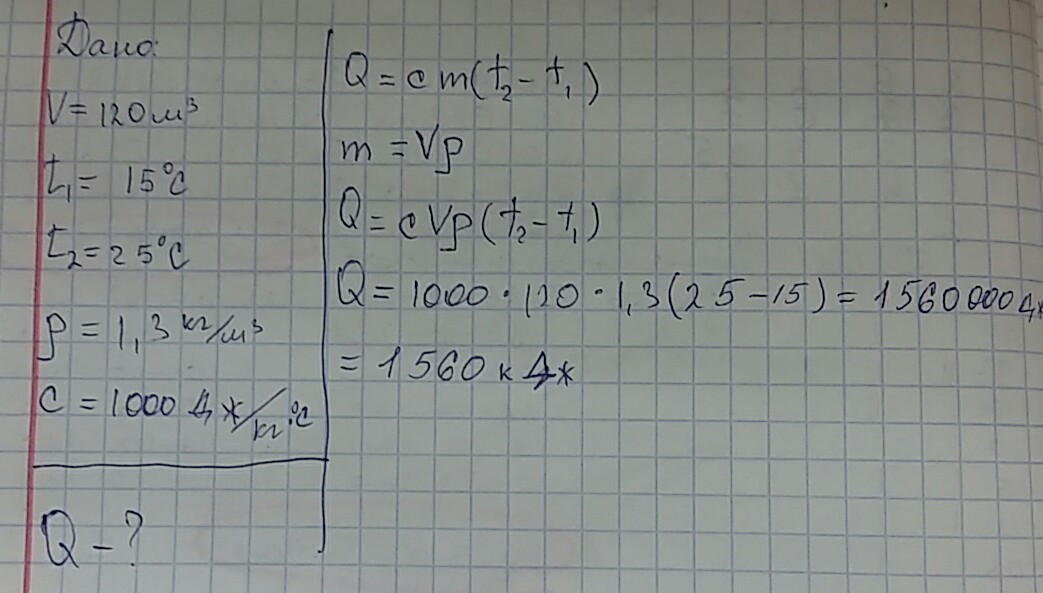 Дано:
V = 120 м³
t₁ = 15°C
t₂ = 25°C
ρ = 1,3 кг/м³
c = 1000 Дж/кг·°C
Q - ?
Q = c m(t₂ - t₁)
m = Vρ
Q = c Vρ(t₂ - t₁)
Q = 1000 · 120 · 1,3(25 - 15) = 1560000 Дж
= 1560 кДж